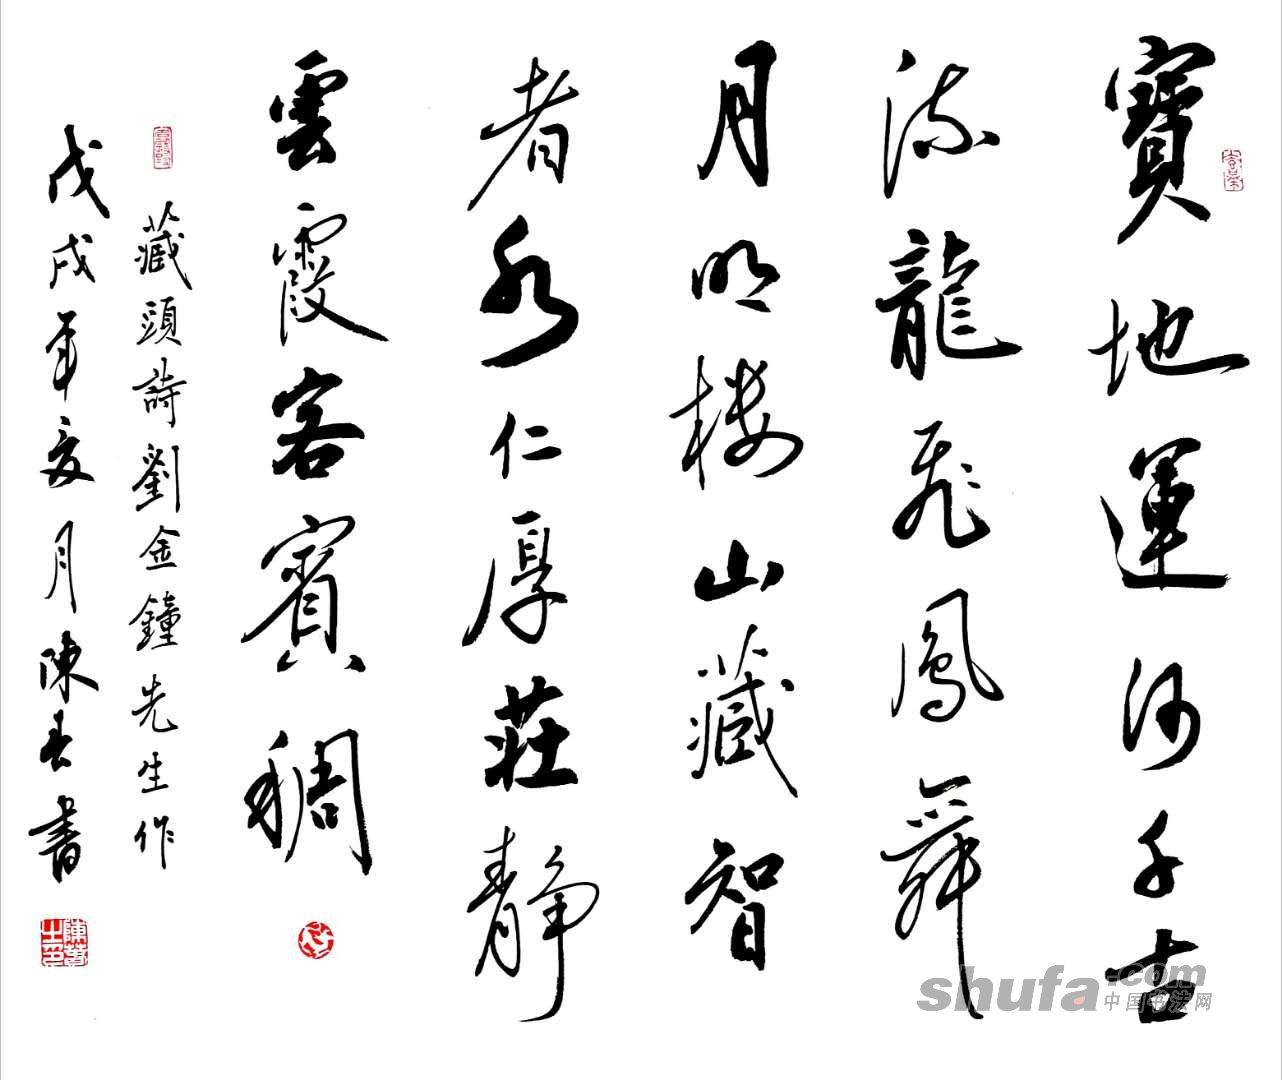 寶地運河千古
流龍飛鳳舞
月明楼山藏智
者水仁厚莊静
雲霞客賓稠
藏頭詩劉金鐘先生作
戊戌年夏月陳書
shufa.com
中国书法网